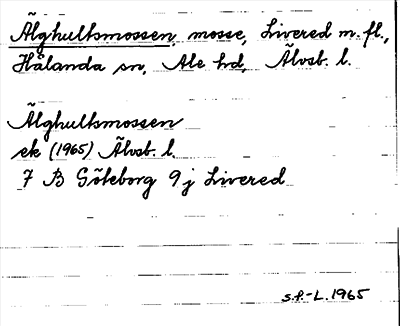 Älghultsmossen, mosse, Livered m. fl.,
Hålanda sn, Ale hd, Älvsb. l.
Älghultsmossen
ek (1965) Älvsb. l.
7 B Göteborg 9 j Livered
s.f.-L. 1965